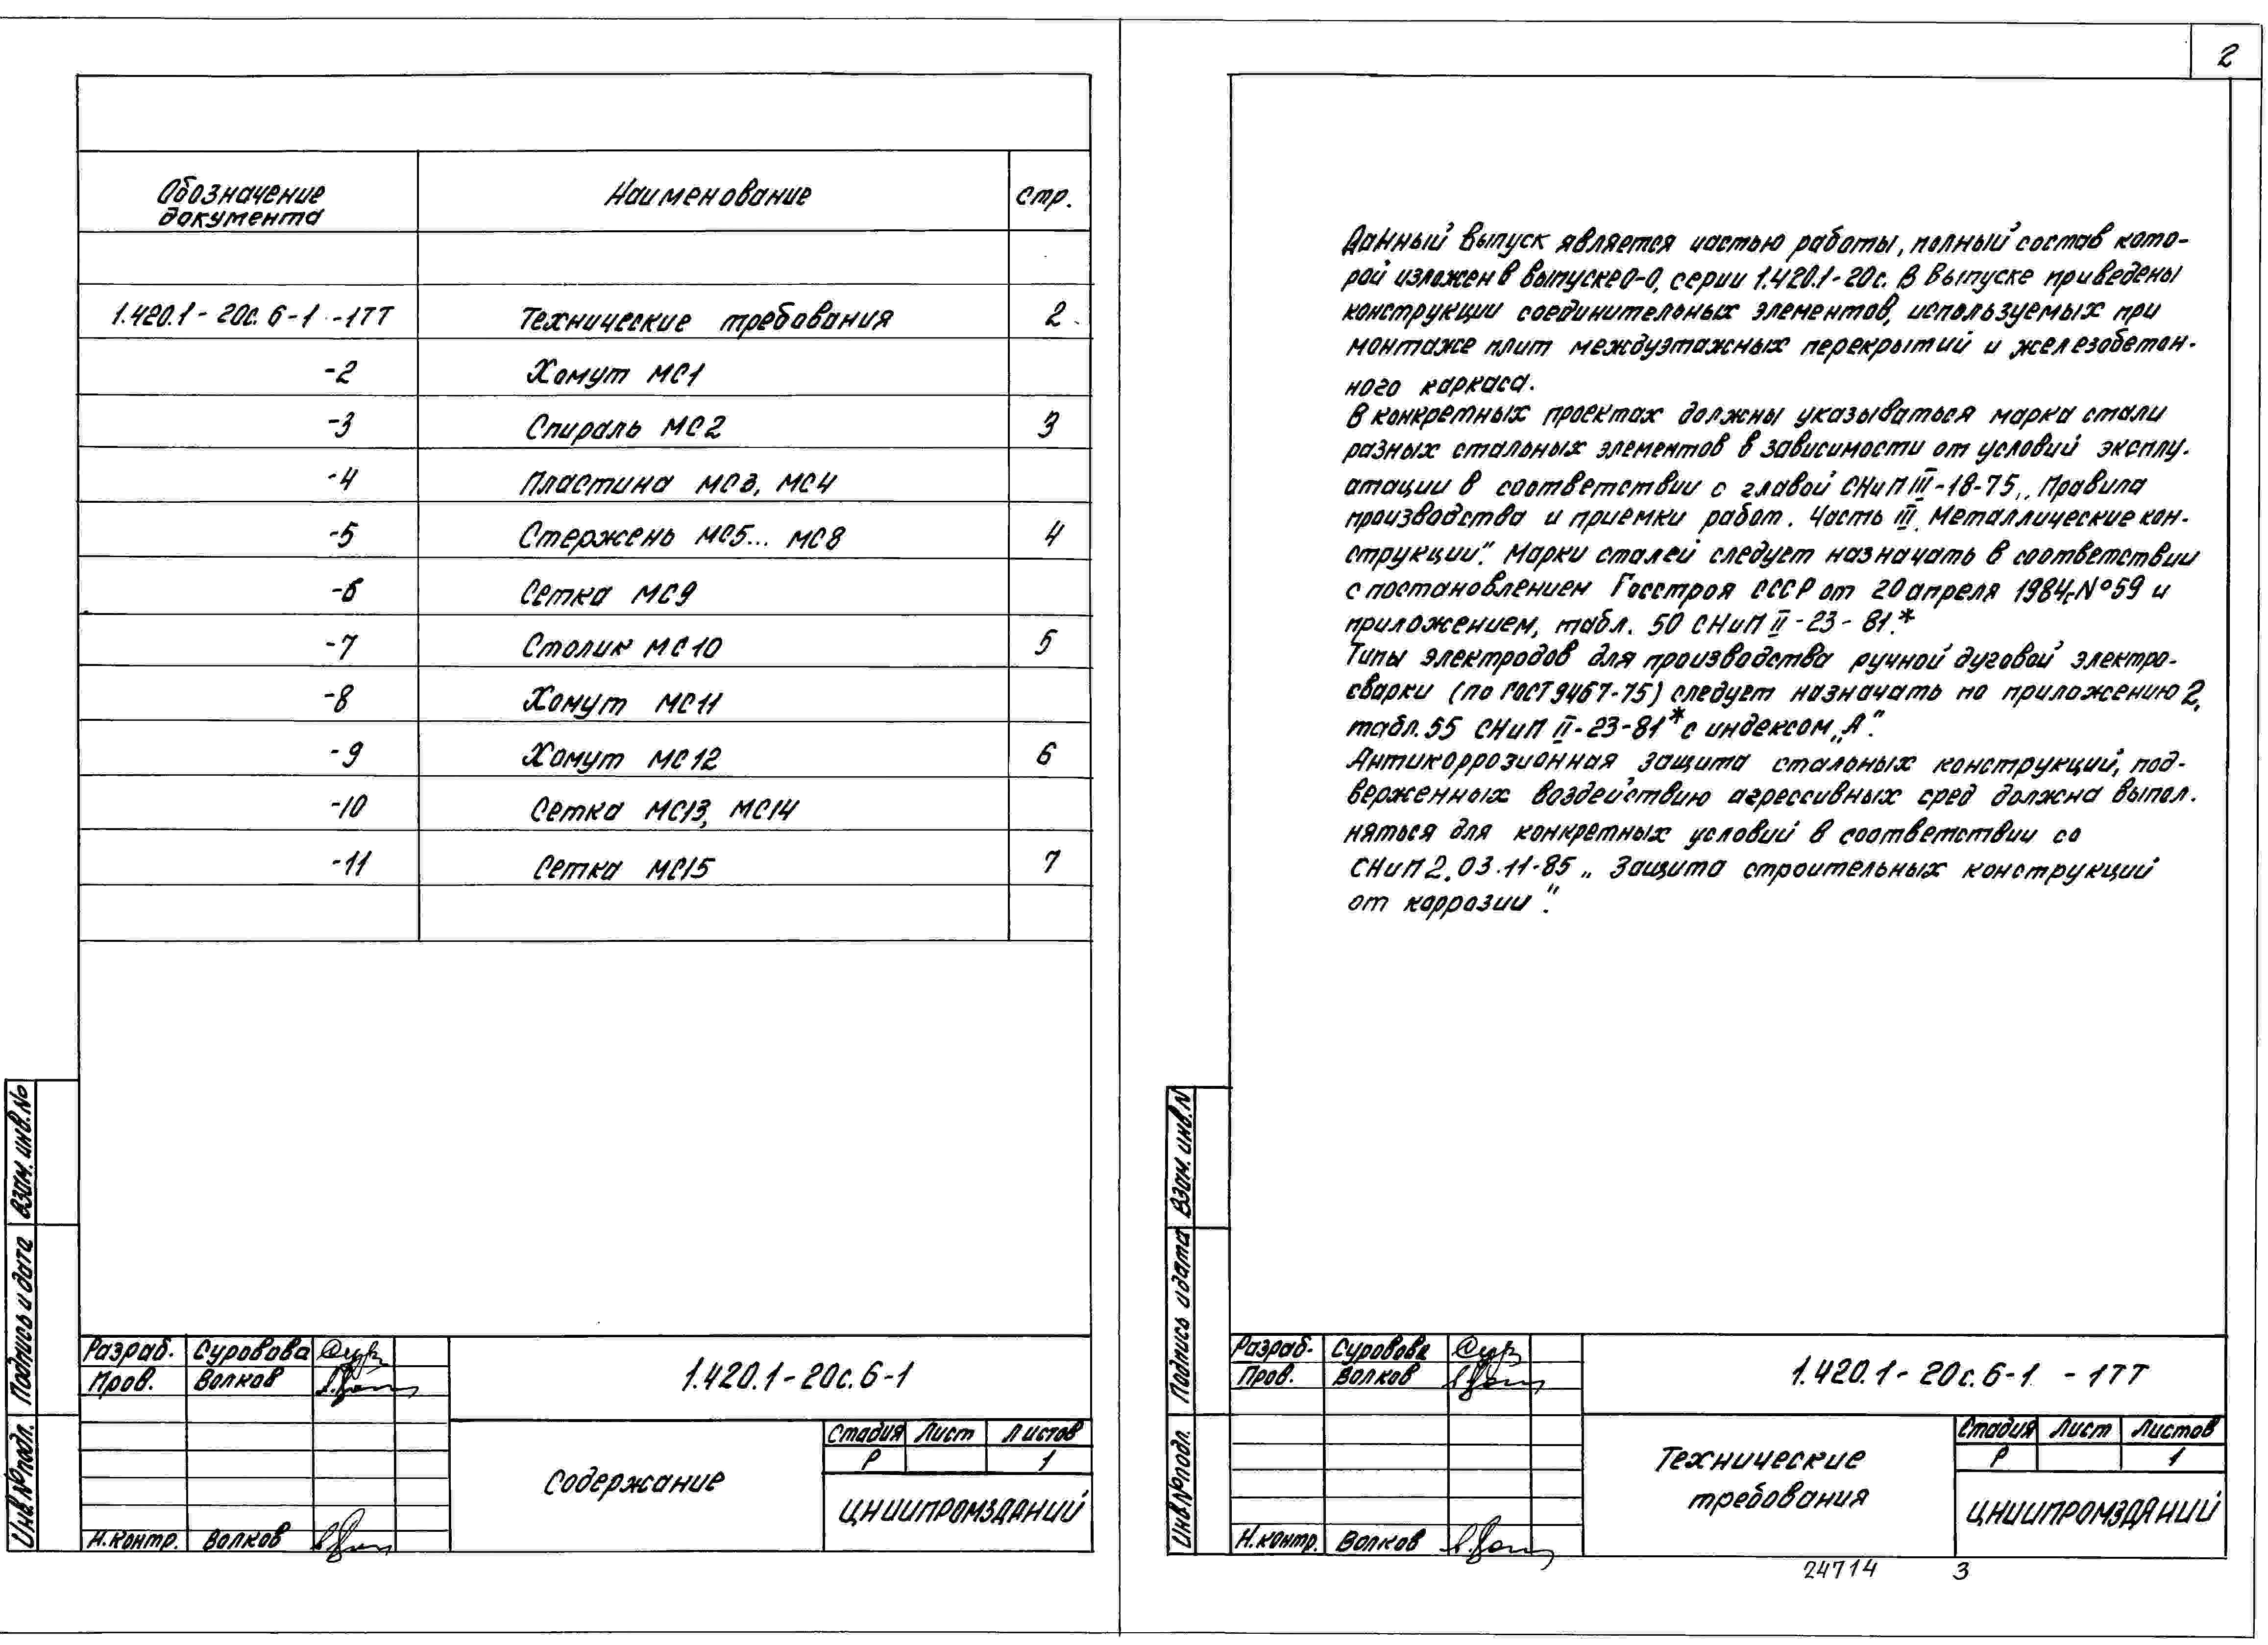 Обозначение документа Наименование стр.
1.420.1-20с.6-1 -1ТТ Технические требования 2
-2 Хомут МС1
-3 Спираль МС2 3
-4 Пластина МС3, МС4
-5 Стержень МС5... МС8 4
-6 Сетка МС9
-7 Столик МС10 5
-8 Хомут МС11
-9 Хомут МС12 6
-10 Сетка МС13, МС14
-11 Сетка МС15 7
Взам. инв.№
Подпись и дата
Инв.№подл.
Разраб. Суровова
Пров. Волков
Н.контр. Волков
1.420.1-20с.6-1
Содержание
Стадия Лист Листов
Р 1
ЦНИИПРОМЗДАНИЙ
2
Данный выпуск является частью работы, полный состав кото-
рой изложен в выпуске 0-0, серии 1.420.1-20с. В выпуске приведены
конструкции соединительных элементов, используемых при
монтаже плит междуэтажных перекрытий и железобетон-
ного каркаса.
В конкретных проектах должны указываться марка стали
разных стальных элементов в зависимости от условий эксплу-
атации в соответствии с главой СНиП III-18-75 „Правила
производства и приемки работ. Часть III. Металлические кон-
струкции". Марки сталей следует назначать в соответствии
с постановлением Госстроя СССР от 20 апреля 1984г №59 и
приложением, табл. 50 СНиП II-23-81.*
Типы электродов для производства ручной дуговой электро-
сварки (по ГОСТ 9467-75) следует назначать по приложению 2,
табл. 55 СНиП II-23-81* с индексом „А".
Антикоррозионная защита стальных конструкций, под-
верженных воздействию агрессивных сред должна выпол-
няться для конкретных условий в соответствии со
СНиП 2.03.11-85 „Защита строительных конструкций
от коррозии".
Взам. инв.№
Подпись и дата
Инв.№подл.
Разраб. Суровова
Пров. Волков
Н.контр. Волков
1.420.1-20с.6-1 -1ТТ
Технические
требования
Стадия Лист Листов
Р 1
ЦНИИПРОМЗДАНИЙ
24714 3